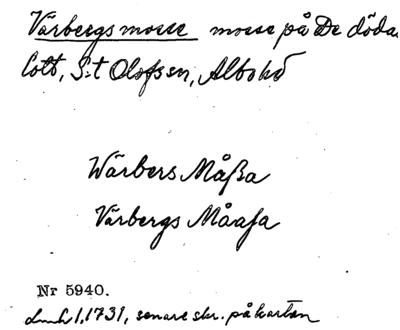 Vårbergs mosse mosse på De döda
lott, S:t Olofs sn, Albo hd
Wårbers Måßa
Vårbergs Måasa
Nr 5940.
1, 1731, senare skr. på kartan